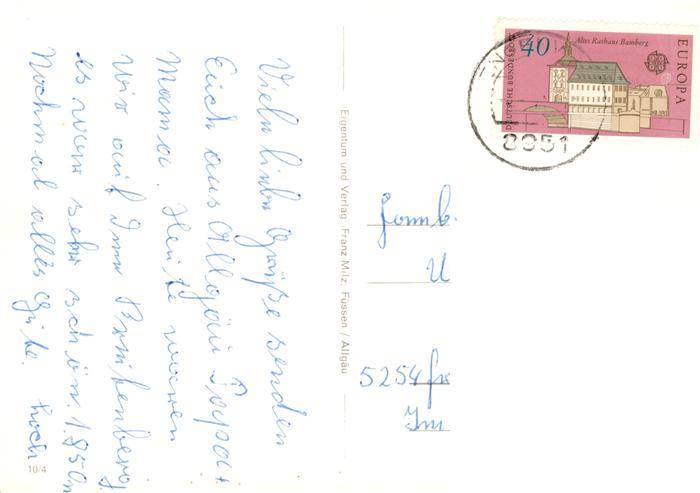 Viele liebe Grüße senden
Euch aus Allgäu Papa +
Mama. Heute waren
wir auf dem Breitenberg.
es war sehr schön. 1.850m
Nochmal alles Gute. hoch
10/4
Eigentum und Verlag Franz Milz, Füssen / Allgäu
40
Altes Rathaus Bamberg
EUROPA
DEUTSCHE BUNDESPOST
8951
Famb.
U
5254